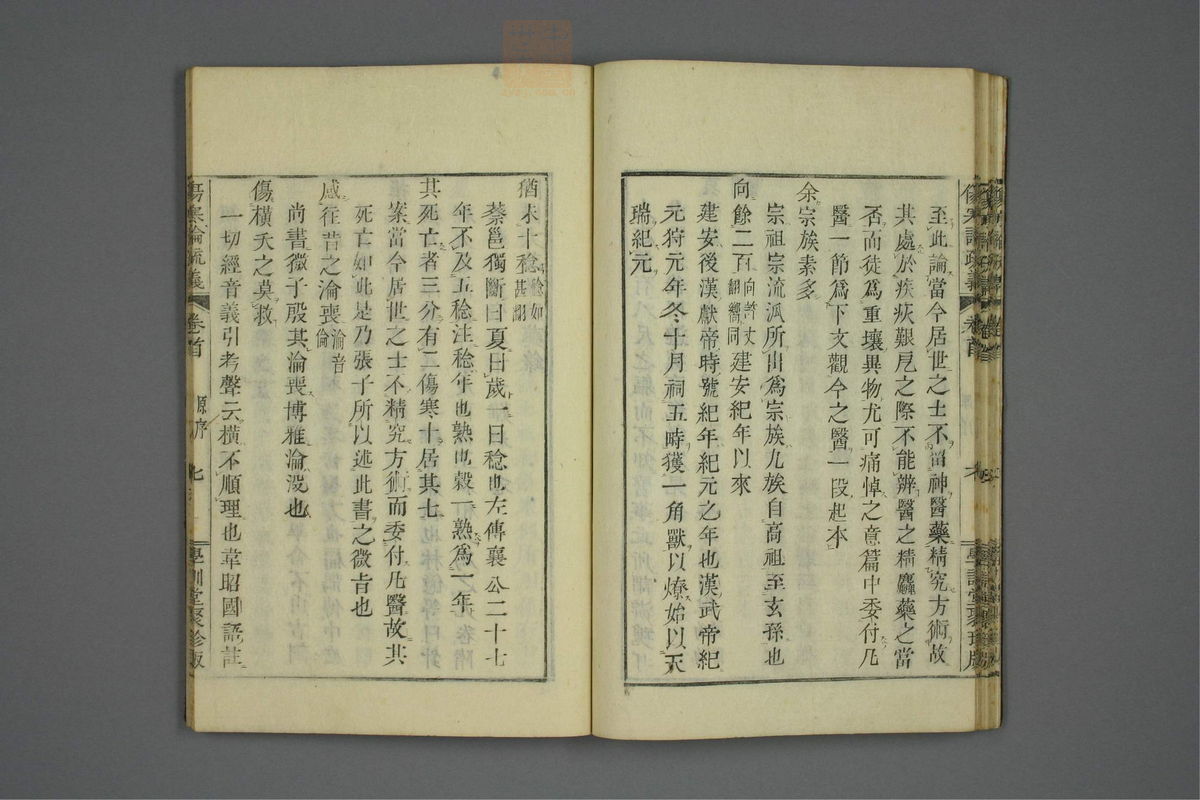 至此論當今居世之士不留神醫藥精究方術故
其處於疾疢艱戹之際不能辨醫之精麤藥之當
否而徒爲重壤異物尤可痛悼之意篇中委付凡
醫一節爲下文觀今之醫一段起本
余宗族素多
宗祖宗流派所出爲宗族九族自高祖至玄孫也
向餘二百向許丈翻嚮同建安紀年以來
建安後漢獻帝時號紀年紀元之年也漢武帝紀
元狩元年冬十月祠五畤獲一角獸以燎始以天
瑞紀元
猶未十稔稔如甚翻
蔡邕獨斷曰夏曰歲一曰稔也左傳襄公二十七
年不及五稔注稔年也熟也穀一熟爲一年
其死亡者三分有二傷寒十居其七
案當今居世之士不精究方術而委付凡醫故其
死亡如此是乃張子所以述此書之微旨也
感往昔之淪喪淪音倫
尚書微子殷其淪喪博雅淪沒也
傷橫夭之莫救
一切經音義引考聲云橫不順理也韋昭國語註
傷寒論疏義 卷首 原序 七 學訓堂聚珍版